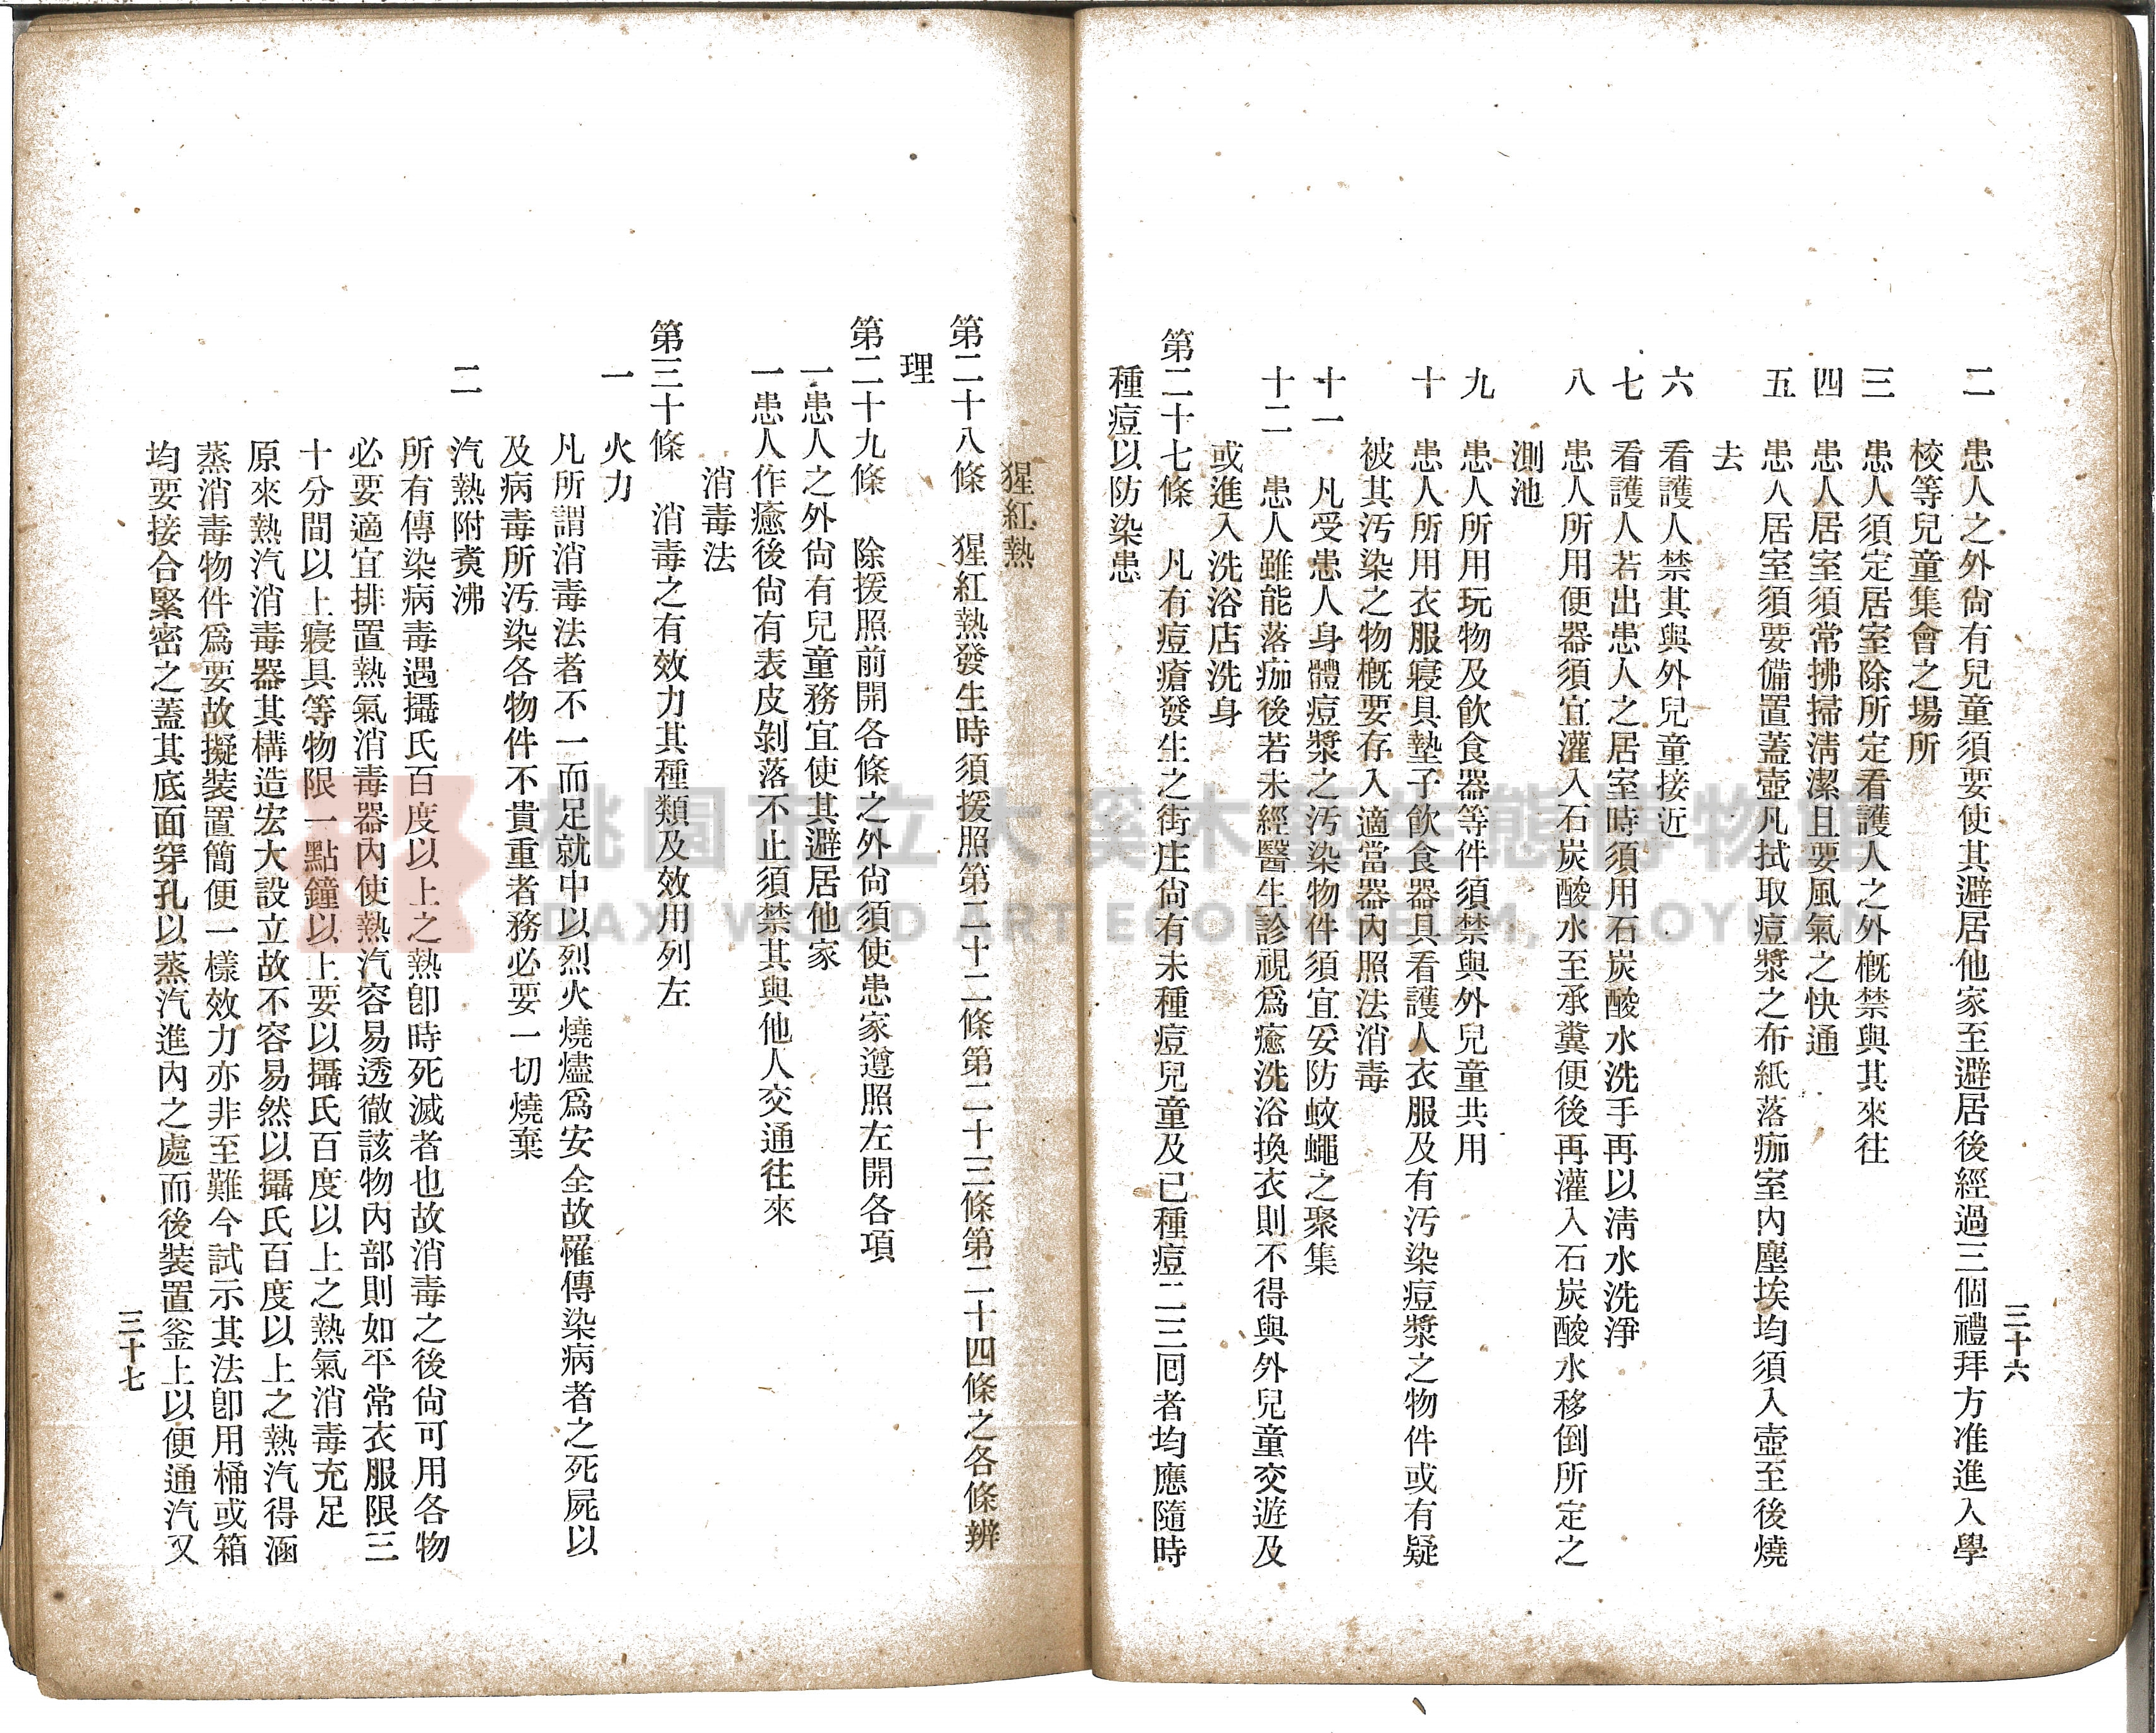 三十六
二　患人之外尙有兒童須要使其避居他家至避居後經過三個禮拜方准進入學
校等兒童集會之場所
三　患人須定居室除所定看護人之外槪禁與其來往
四　患人居室須常拂掃淸潔且要風氣之快通
五　患人居室須要備置蓋壺凡拭取痘漿之布紙落痂室內塵埃均須入壺至後燒
去
六　看護人禁其與外兒童接近
七　看護人若出患人之居室時須用石炭酸水洗手再以淸水洗淨
八　患人所用便器須宜灌入石炭酸水至承糞便後再灌入石炭酸水移倒所定之
測池
九　患人所用玩物及飮食器等件須禁與外兒童共用
十　患人所用衣服寢具墊子飮食器具看護人衣服及有汚染痘漿之物件或有疑
被其汚染之物槪要存入適當器內照法消毒
十一　凡受患人身體痘漿之汚染物件須宜妥防蚊蠅之聚集
十二　患人雖能落痂後若未經醫生診視爲癒洗浴換衣則不得與外兒童交遊及
或進入洗浴店洗身
第二十七條　凡有痘瘡發生之街庄尙有未種痘兒童及已種痘二三回者均應隨時
種痘以防染患
猩紅熱
第二十八條　猩紅熱發生時須援照第二十二條第二十三條第二十四條之各條辨
理
第二十九條　除援照前開各條之外尙須使患家遵照左開各項
一患人之外尙有兒童務宜使其避居他家
一患人作癒後尙有表皮剝落不止須禁其與他人交通往來
消毒法
第三十條　消毒之有效力其種類及效用列左
一　火力
凡所謂消毒法者不一而足就中以烈火燒燼爲安全故罹傳染病者之死屍以
及病毒所汚染各物件不貴重者務必要一切燒棄
二　汽熱附煑沸
所有傳染病毒遇攝氏百度以上之熱卽時死滅者也故消毒之後尙可用各物
必要適宜排置熱氣消毒器內使熱汽容易透徹該物內部則如平常衣服限三
十分間以上寢具等物限一點鐘以上要以攝氏百度以上之熱氣消毒充足
原來熱汽消毒器其構造宏大設立故不容易然以攝氏百度以上之熱汽得涵
蒸消毒物件爲要故擬裝置簡便一樣效力亦非至難今試示其法卽用桶或箱
均要接合緊密之蓋其底面穿孔以蒸汽進內之處而後裝置釜上以便通汽又
三十七
桃園市立大溪木藝生態博物館
DAXI WOOD ART ECOMUSEUM, TAOYUAN